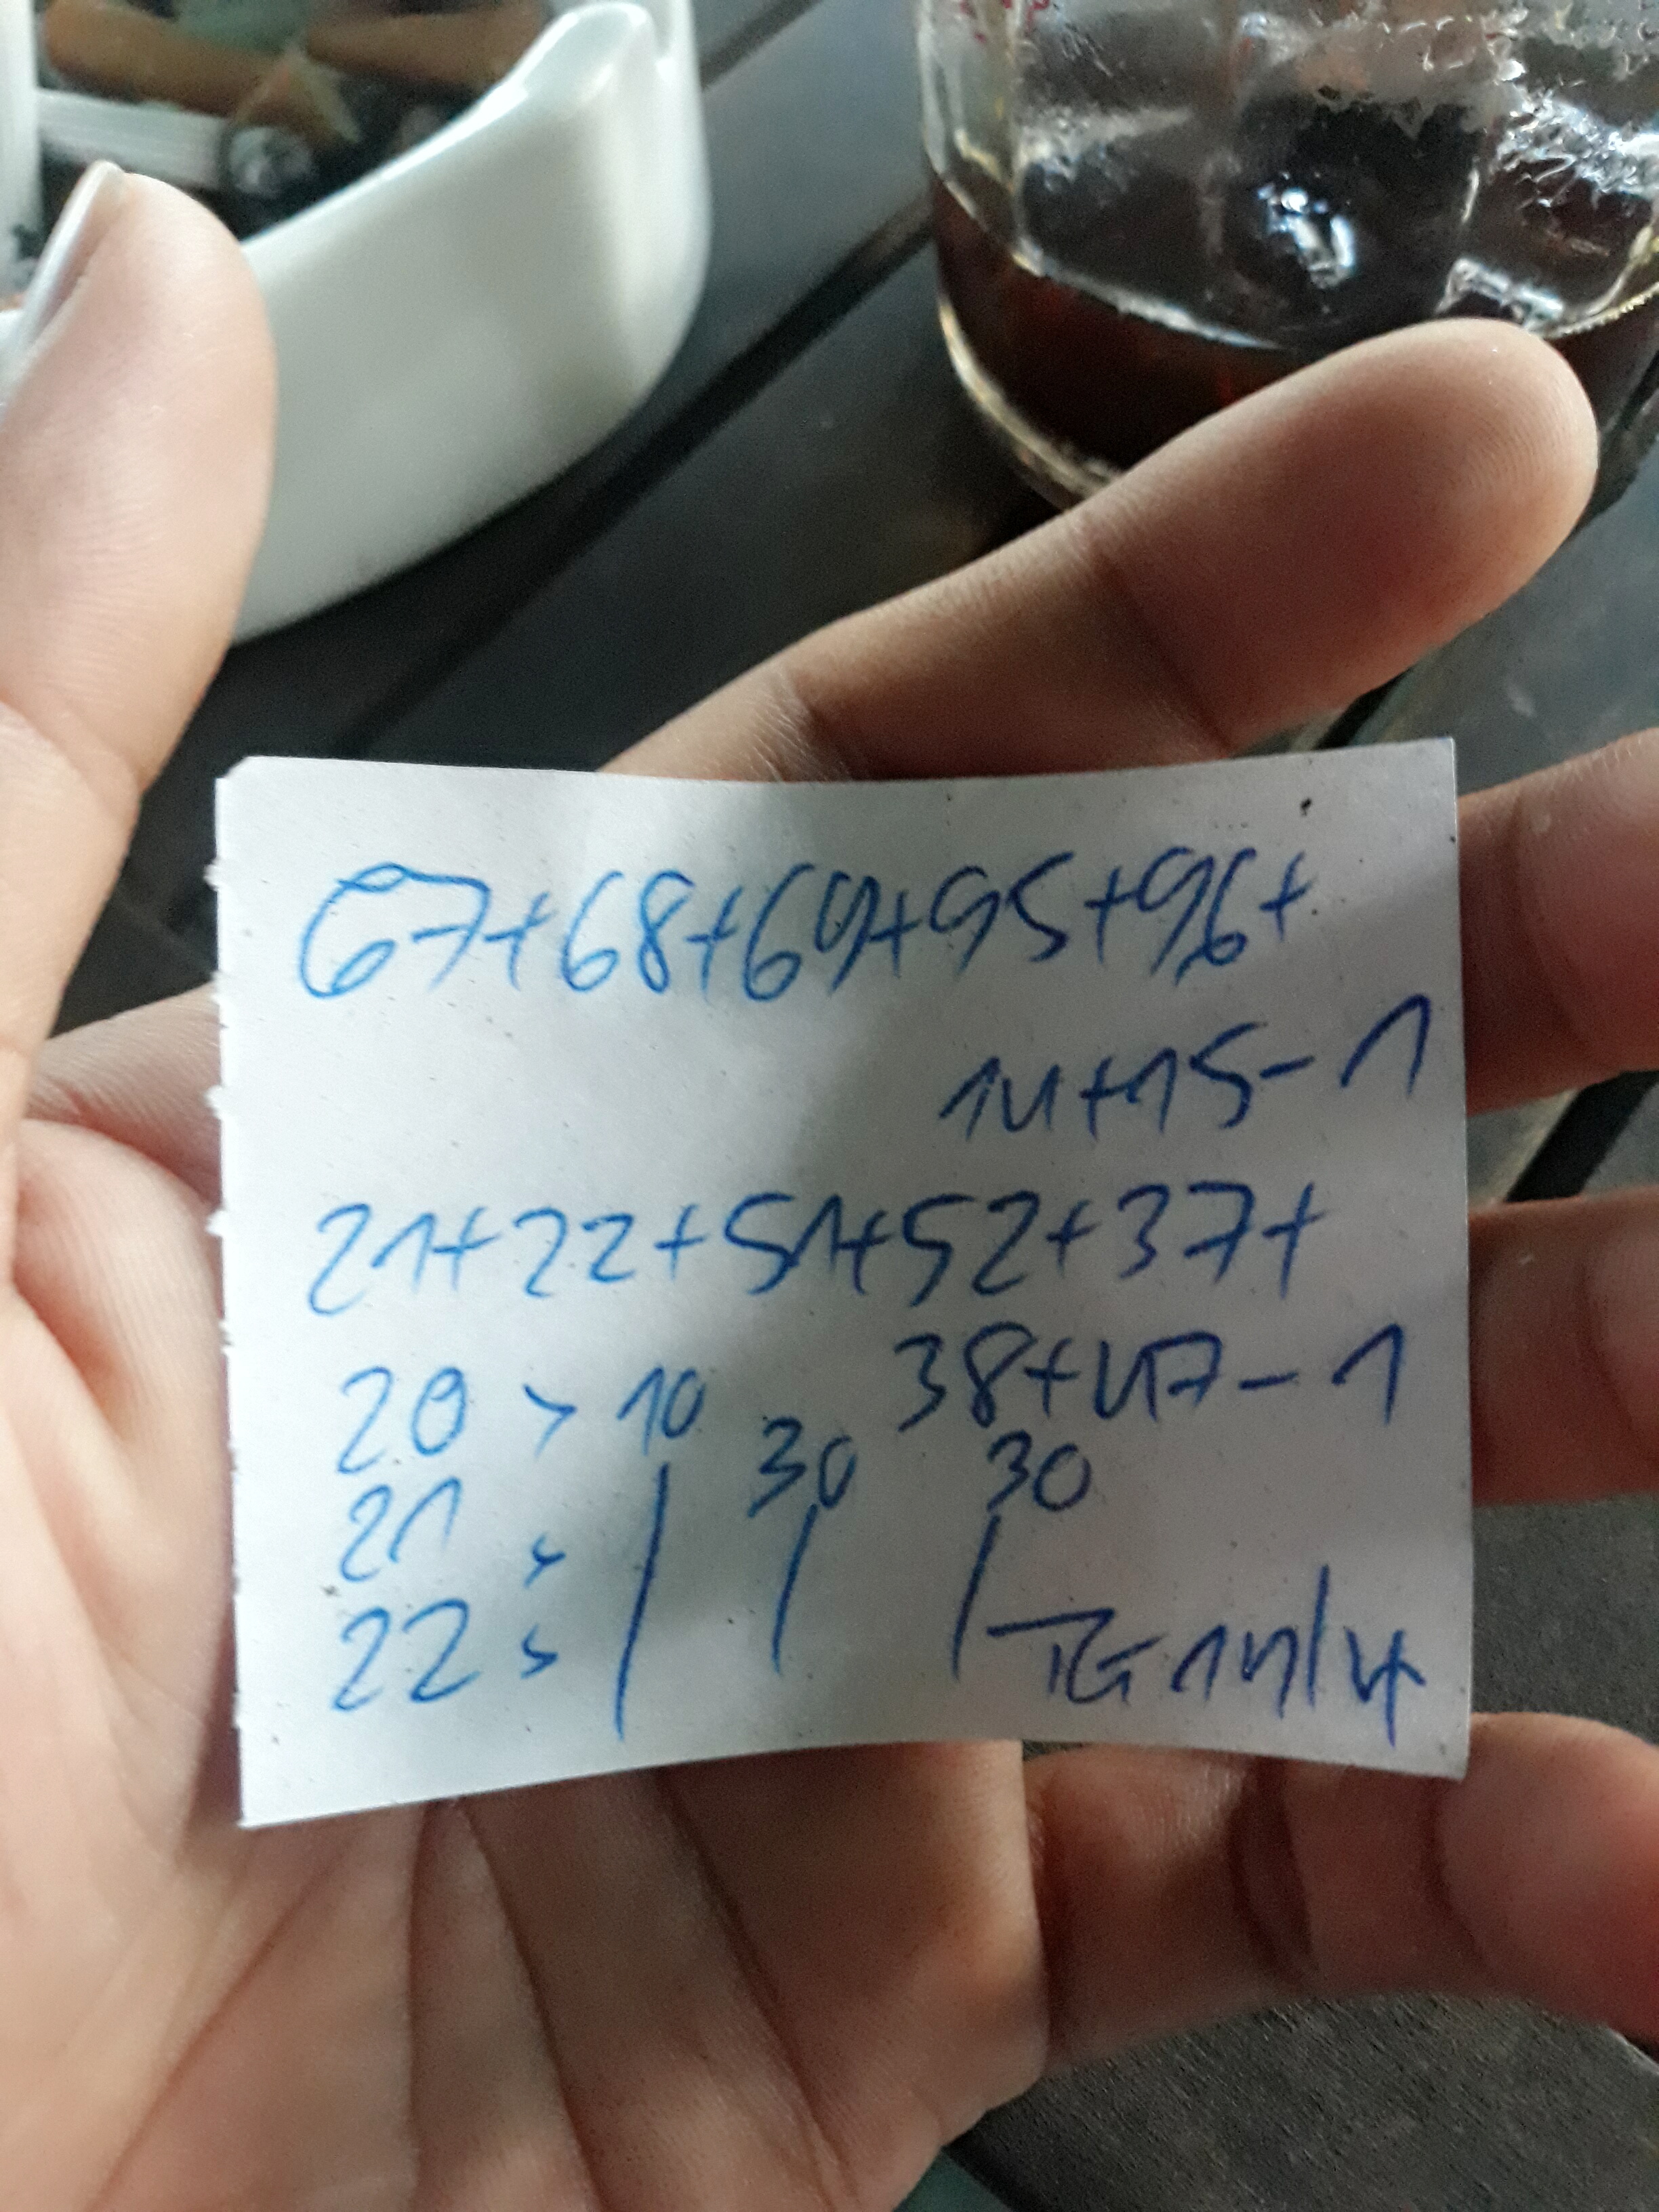 67+68+69+95+96+
14+15-1
21+22+51+52+37+
38+47-1
20 > 10 30 30
21 >
22 >
TG 14/4